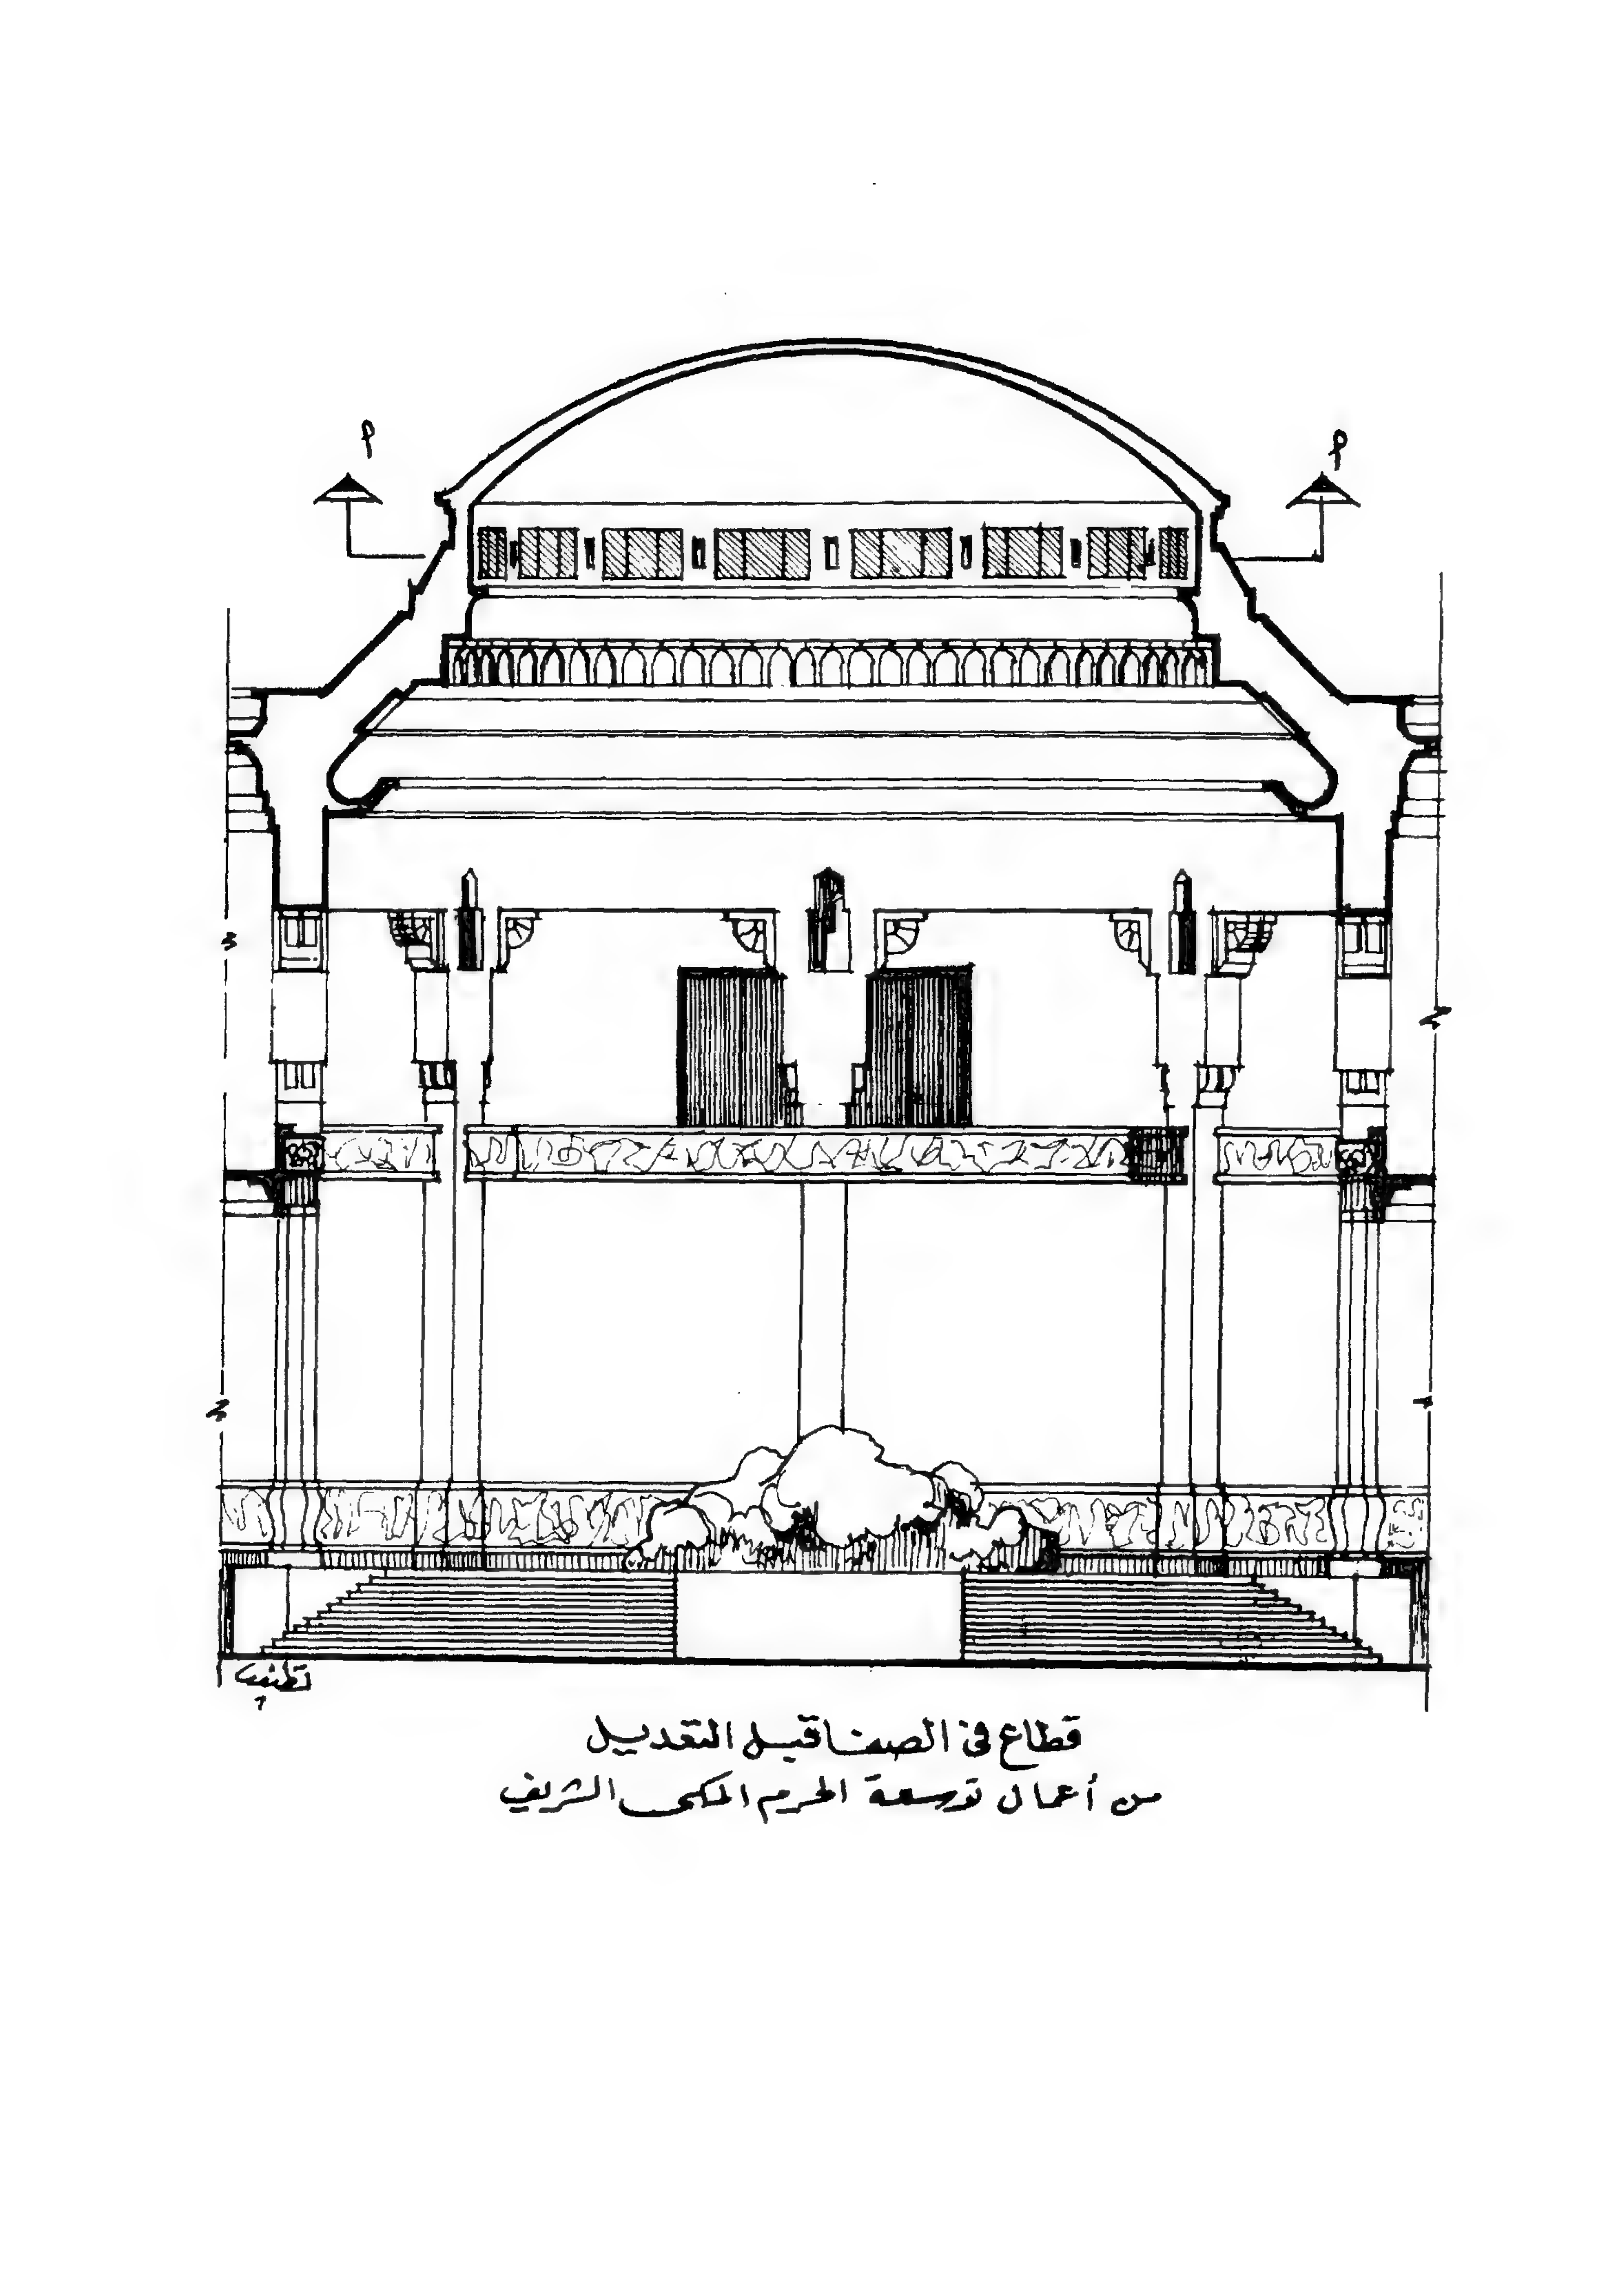 م
م
قطاع فى الصفا قبل التعديل
من أعمال توسعة الحرم المكى الشريف